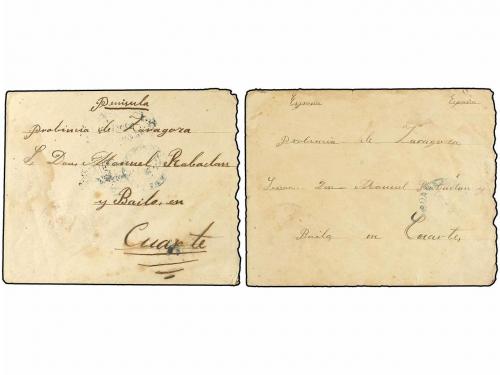 Peninsula
Probincia de Zaragoza
S. Don Manuel Rabadan
y Bailo, en
Cuarte
España España
Probincia de Zaragoza
Don Manuel Rabadan y
Bailo en Cuarte,